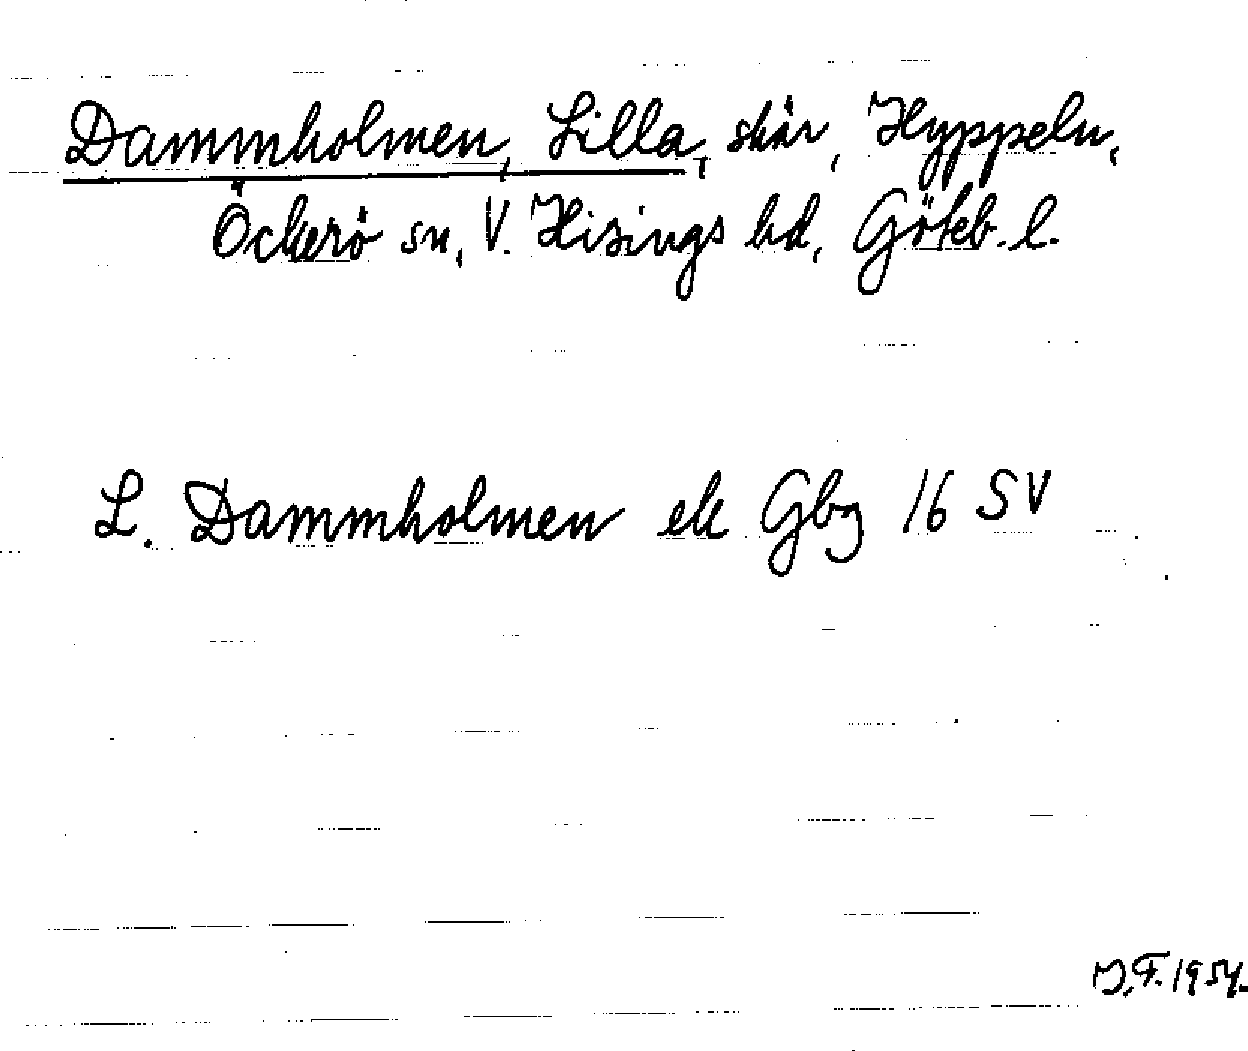 Dammholmen, Lilla, skär, Hyppeln,
Öckerö sn, V. Hisings hd, Göteb. l.
L. Dammholmen ek Gbg 16 SV
F. 1954.